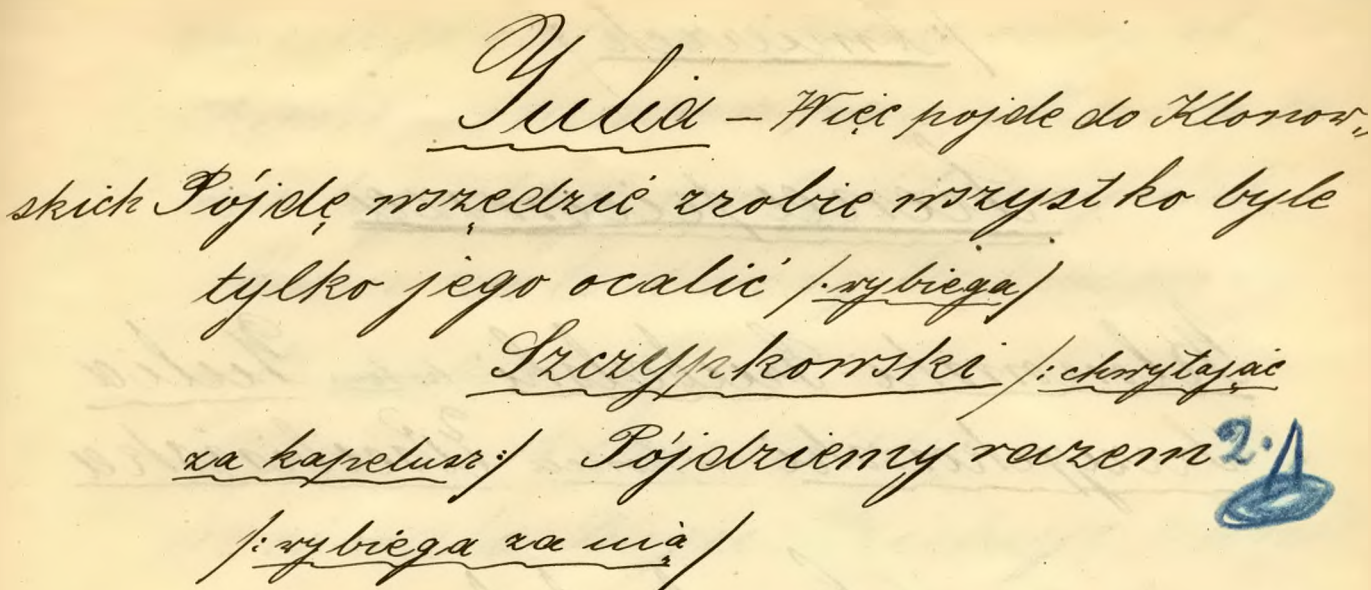 Julia – Więc pojde do Klonow„
skich Pójdę wszędzić zrobię wszystko byle
tylko jego ocalić /:wybiega/
Szczypkowski /:chwytając
za kapelusz:/ Pójdziemy razem 2.
/:wybiega za nią/